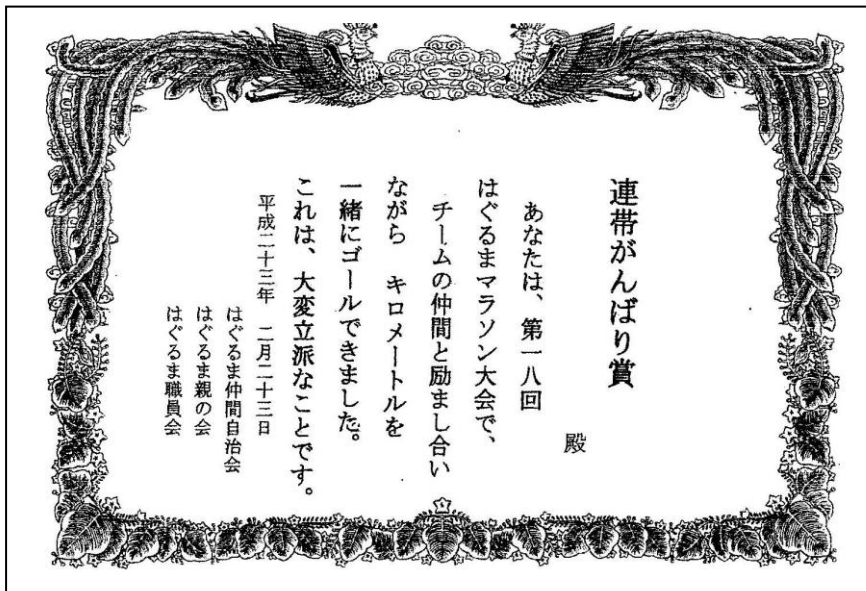 連帯がんばり賞
殿
あなたは、第一八回
はぐるまマラソン大会で、
チームの仲間と励まし合い
ながら　キロメートルを
一緒にゴールできました。
これは、大変立派なことです。
平成二十三年　二月二十三日
はぐるま仲間自治会
はぐるま親の会
はぐるま職員会